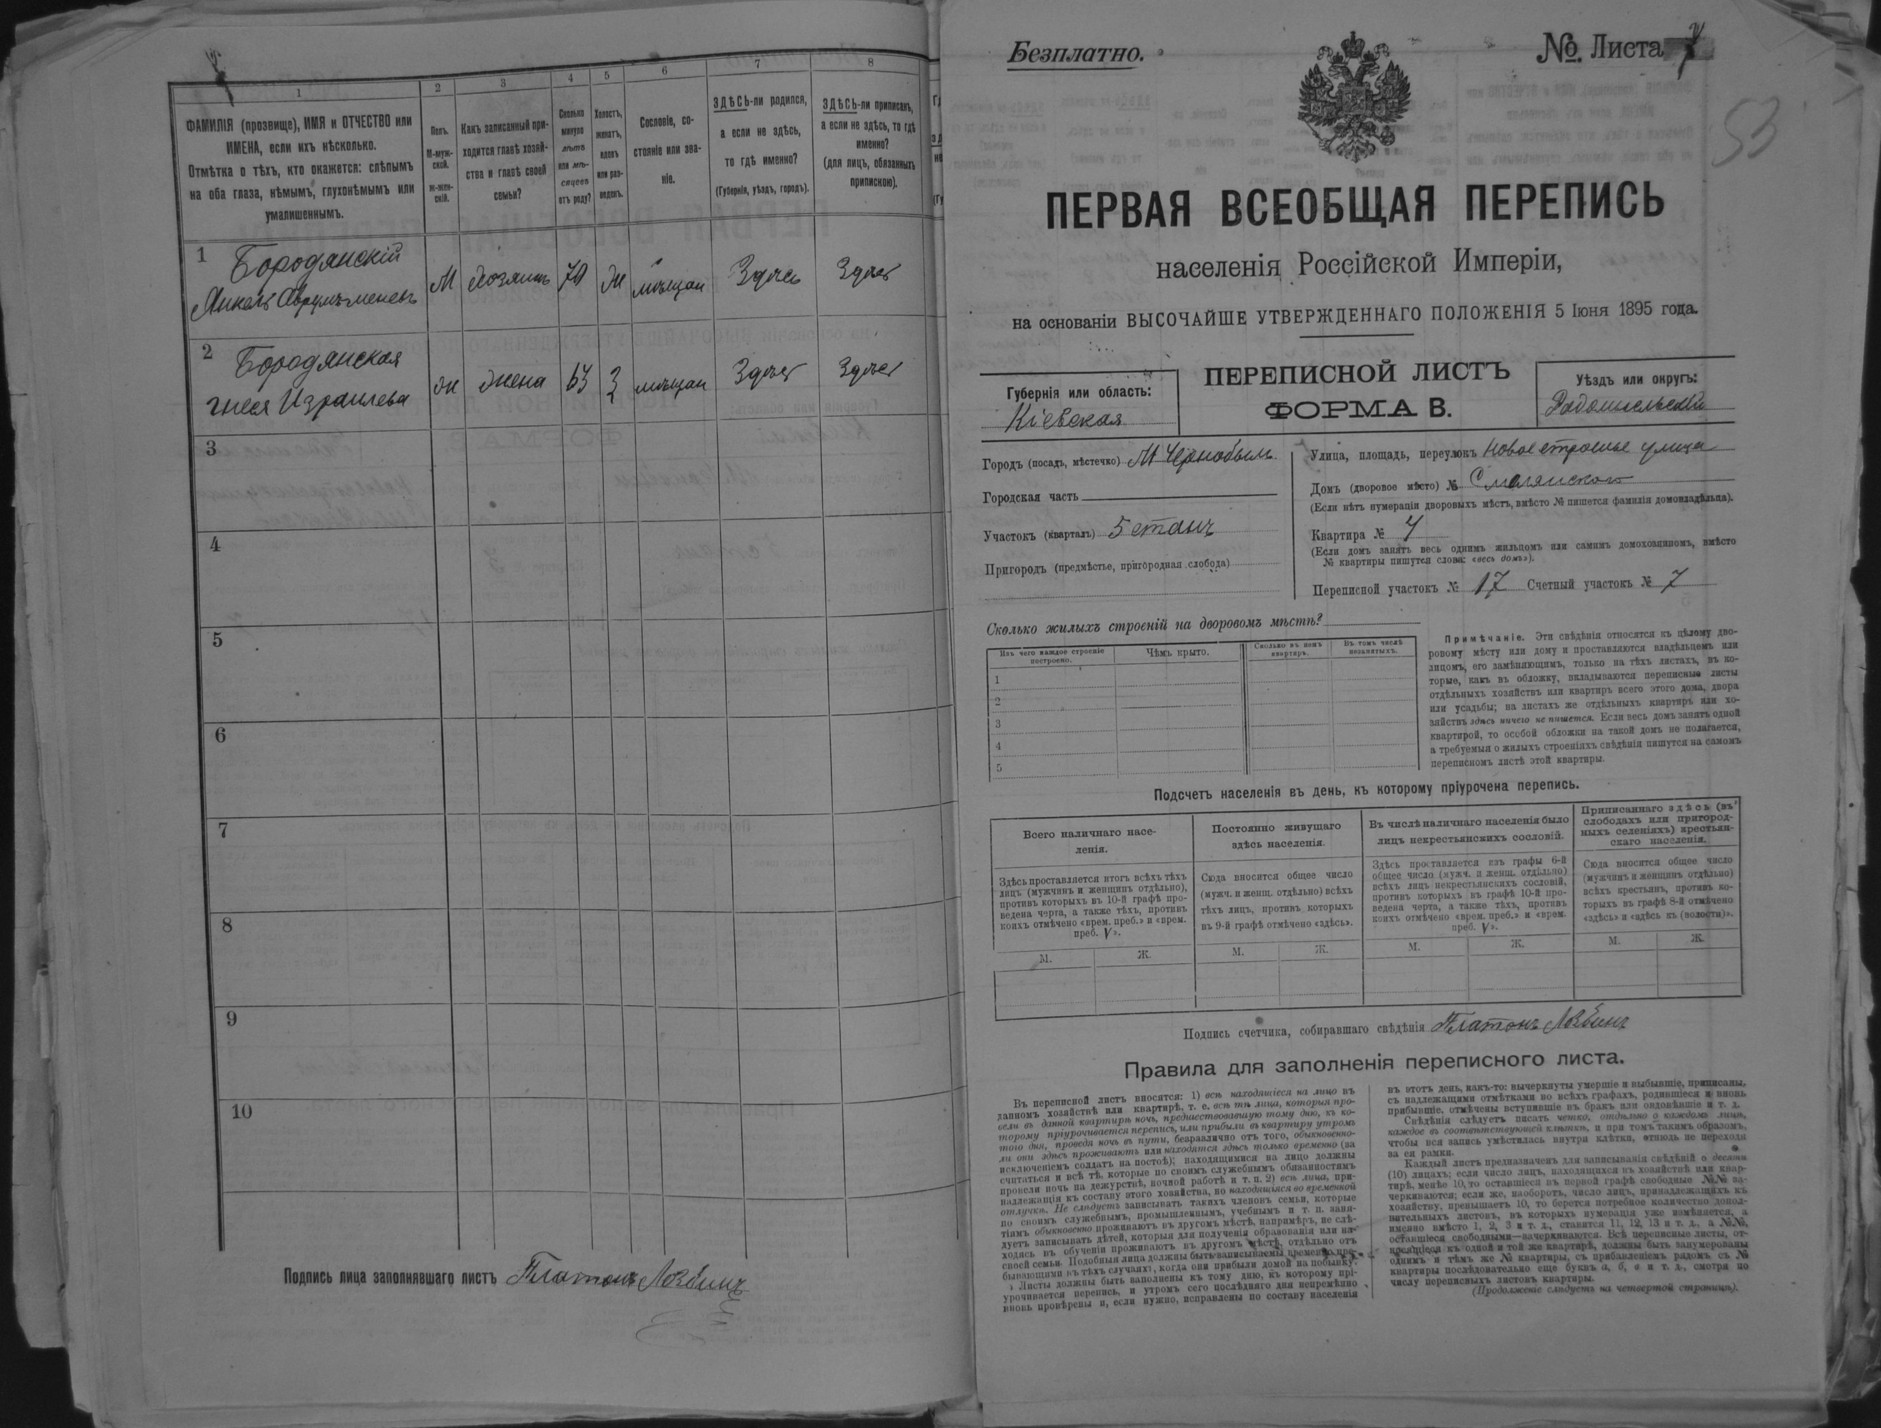 1
2
3
4
5
6
7
8
ФАМИЛІЯ (прозвище), ИМЯ и ОТЧЕСТВО или
ИМЕНА, если ихъ нѣсколько.
Отмѣтка о тѣхъ, кто окажется: слѣпымъ
на оба глаза, нѣмымъ, глухонѣмымъ или
умалишеннымъ.
Полъ.
М-муж-
ской.
Ж-жен-
скій.
Какъ записанный при-
ходится главѣ хозяй-
ства и главѣ своей
семьи?
Сколько
минуло
лѣтъ
или мѣ-
сяцевъ
отъ роду?
Холостъ,
женатъ,
вдовъ
или раз-
веденъ.
Сословіе, со-
стояніе или зва-
ніе.
ЗДѢСЬ-ли родился,
а если не здѣсь,
то гдѣ именно?
(Губернія, уѣздъ, городъ).
ЗДѢСЬ-ли приписанъ,
а если не здѣсь, то гдѣ
именно?
(для лицъ, обязанныхъ
припискою).
1 Бородянскій
М хозяинъ 70 Ж мѣщан Здѣсь Здѣсь
2 Бородянская
Израилева
ж жена 63 З мѣщан Здѣсь Здѣсь
3
4
5
6
7
8
9
10
Подпись лица заполнявшаго листъ Платонъ
Безплатно.
№ Листа 7
53
ПЕРВАЯ ВСЕОБЩАЯ ПЕРЕПИСЬ
населенія Россійской Имперіи,
на основаніи ВЫСОЧАЙШЕ УТВЕРЖДЕННАГО ПОЛОЖЕНІЯ 5 Іюня 1895 года.
ПЕРЕПИСНОЙ ЛИСТЪ
ФОРМА В.
Губернія или область:
Кіевская
Уѣздъ или округъ:
Радомысльскій
Городъ (посадъ, мѣстечко) М Чернобыль
Городская часть
Участокъ (кварталъ) 5 станъ
Пригородъ (предмѣстье, пригородная слобода)
Улица, площадь, переулокъ Новое строенье улица
Домъ (дворовое мѣсто) № Смолянского
(Если нѣтъ нумераціи дворовыхъ мѣстъ, вмѣсто № пишется фамилія домовладѣльца).
Квартира №
(Если домъ занятъ весь однимъ жильцомъ или самимъ домохозяиномъ, вмѣсто
№ квартиры пишутся слова: «весь домъ»).
Переписной участокъ № 17 Счетный участокъ № 7
Сколько жилыхъ строеній на дворовомъ мѣстѣ?
Изъ чего каждое строеніе
построено.
Чѣмъ крыто.
Сколько въ немъ
квартиръ.
Въ томъ числѣ
незанятыхъ.
1
2
3
4
5
Примѣчаніе. Эти свѣдѣнія относятся къ цѣлому дво-
ровому мѣсту или дому и проставляются владѣльцемъ или
лицомъ, его замѣняющимъ, только на тѣхъ листахъ, въ ко-
торые, какъ въ обложку, вкладываются переписные листы
отдѣльныхъ хозяйствъ или квартиръ всего этого дома, двора
или усадьбы; на листахъ же отдѣльныхъ квартиръ или хо-
зяйствъ здѣсь ничего не пишется. Если весь домъ занятъ одной
квартирой, то особой обложки на такой домъ не полагается,
а требуемыя о жилыхъ строеніяхъ свѣдѣнія пишутся на самомъ
переписномъ листѣ этой квартиры.
Подсчетъ населенія въ день, къ которому пріурочена перепись.
Всего наличнаго насе-
ленія.
Постоянно живущаго
здѣсь населенія.
Въ числѣ наличнаго населенія было
лицъ некрестьянскихъ сословій.
Приписаннаго здѣсь (въ
слободахъ или пригород-
ныхъ селеніяхъ) крестьян-
скаго населенія.
Здѣсь проставляется итогъ всѣхъ тѣхъ
лицъ (мужчинъ и женщинъ отдѣльно),
противъ которыхъ въ 10-й графѣ про-
ведена черта, а также тѣхъ, противъ
коихъ отмѣчено «врем. преб.» и «врем.
преб. V».
Сюда вносится общее число
(мужч. и женщ. отдѣльно) всѣхъ
тѣхъ лицъ, противъ которыхъ
въ 9-й графѣ отмѣчено «здѣсь».
Здѣсь проставляется изъ графы 6-й
общее число (мужч. и женщ. отдѣльно)
всѣхъ лицъ некрестьянскихъ сословій,
противъ которыхъ въ графѣ 10-й про-
ведена черта, а также тѣхъ, противъ
коихъ отмѣчено «врем. преб.» и «врем.
преб. V».
Сюда вносится общее число
(мужчинъ и женщинъ отдѣльно)
всѣхъ крестьянъ, противъ ко-
торыхъ въ графѣ 8-й отмѣчено
«здѣсь» и «здѣсь къ (волости)».
М. Ж. М. Ж. М. Ж. М. Ж.
Подпись счетчика, собиравшаго свѣдѣнія Платонъ
Правила для заполненія переписного листа.
Въ переписной листъ вносятся: 1) всѣ находящіеся на лицо въ
данномъ хозяйствѣ или квартирѣ, т. е. всѣ тѣ лица, которыя про-
вели въ данной квартирѣ ночь, предшествовавшую тому дню, къ ко-
торому пріурочивается перепись, или прибыли въ квартиру утромъ
того дня, проведя ночь въ пути, безразлично отъ того, обыкновенно-
ли они здѣсь проживаютъ или находятся здѣсь только временно (за
исключеніемъ солдатъ на постоѣ); находящимися на лицо должны
считаться и всѣ тѣ, которые по своимъ служебнымъ обязанностямъ
провели ночь на дежурствѣ, ночной работѣ и т. п. 2) всѣ лица, при-
надлежащія къ составу этого хозяйства, но находящіяся во временной
отлучкѣ. Не слѣдуетъ записывать такихъ членовъ семьи, которые
по своимъ служебнымъ, промышленнымъ, учебнымъ и т. п. заня-
тіямъ обыкновенно проживаютъ въ другомъ мѣстѣ, напримѣръ, не слѣ-
дуетъ записывать дѣтей, которыя для полученія образованія или на-
ходясь въ обученіи проживаютъ въ другомъ мѣстѣ, отдѣльно отъ
своей семьи. Подобныя лица должны быть записываемы временно пре-
бывающими въ тѣхъ случаяхъ, когда они прибыли домой на побывку.
Листы должны быть заполнены къ тому дню, къ которому прі-
урочивается перепись, и утромъ сего послѣдняго дня непремѣнно
вновь провѣрены и, если нужно, исправлены по составу населенія
въ этотъ день, какъ-то: вычеркнуты умершіе и выбывшіе, приписаны,
съ надлежащими отмѣтками во всѣхъ графахъ, родившіеся и вновь
прибывшіе, отмѣчены вступившіе въ бракъ или овдовѣвшіе и т. д.
Свѣдѣнія слѣдуетъ писать четко, отдѣльно о каждомъ лицѣ,
каждое въ соотвѣтствующей клѣткѣ, и при томъ такимъ образомъ,
чтобы вся запись умѣстилась внутри клѣтки, отнюдь не переходя
за ея рамки.
Каждый листъ предназначенъ для записыванія свѣдѣній о десяти
(10) лицахъ; если число лицъ, находящихся въ хозяйствѣ или квар-
тирѣ, менѣе 10, то оставшіеся въ первой графѣ свободные №№ за-
черкиваются; если же, наоборотъ, число лицъ, принадлежащихъ къ
хозяйству, превышаетъ 10, то берется потребное количество допол-
нительныхъ листовъ, въ которыхъ нумерація уже измѣняется, а
именно вмѣсто 1, 2, 3 и т. д., ставится 11, 12, 13 и т. д., а №№,
оставшіеся свободными—зачеркиваются. Всѣ переписные листы, от-
носящіеся къ одной и той же квартирѣ, должны быть занумерованы
однимъ и тѣмъ же № квартиры, съ прибавленіемъ рядомъ съ №
квартиры послѣдовательно еще буквъ а, б, в и т. д., смотря по
числу переписныхъ листовъ квартиры.
(Продолженіе слѣдуетъ на четвертой страницѣ).